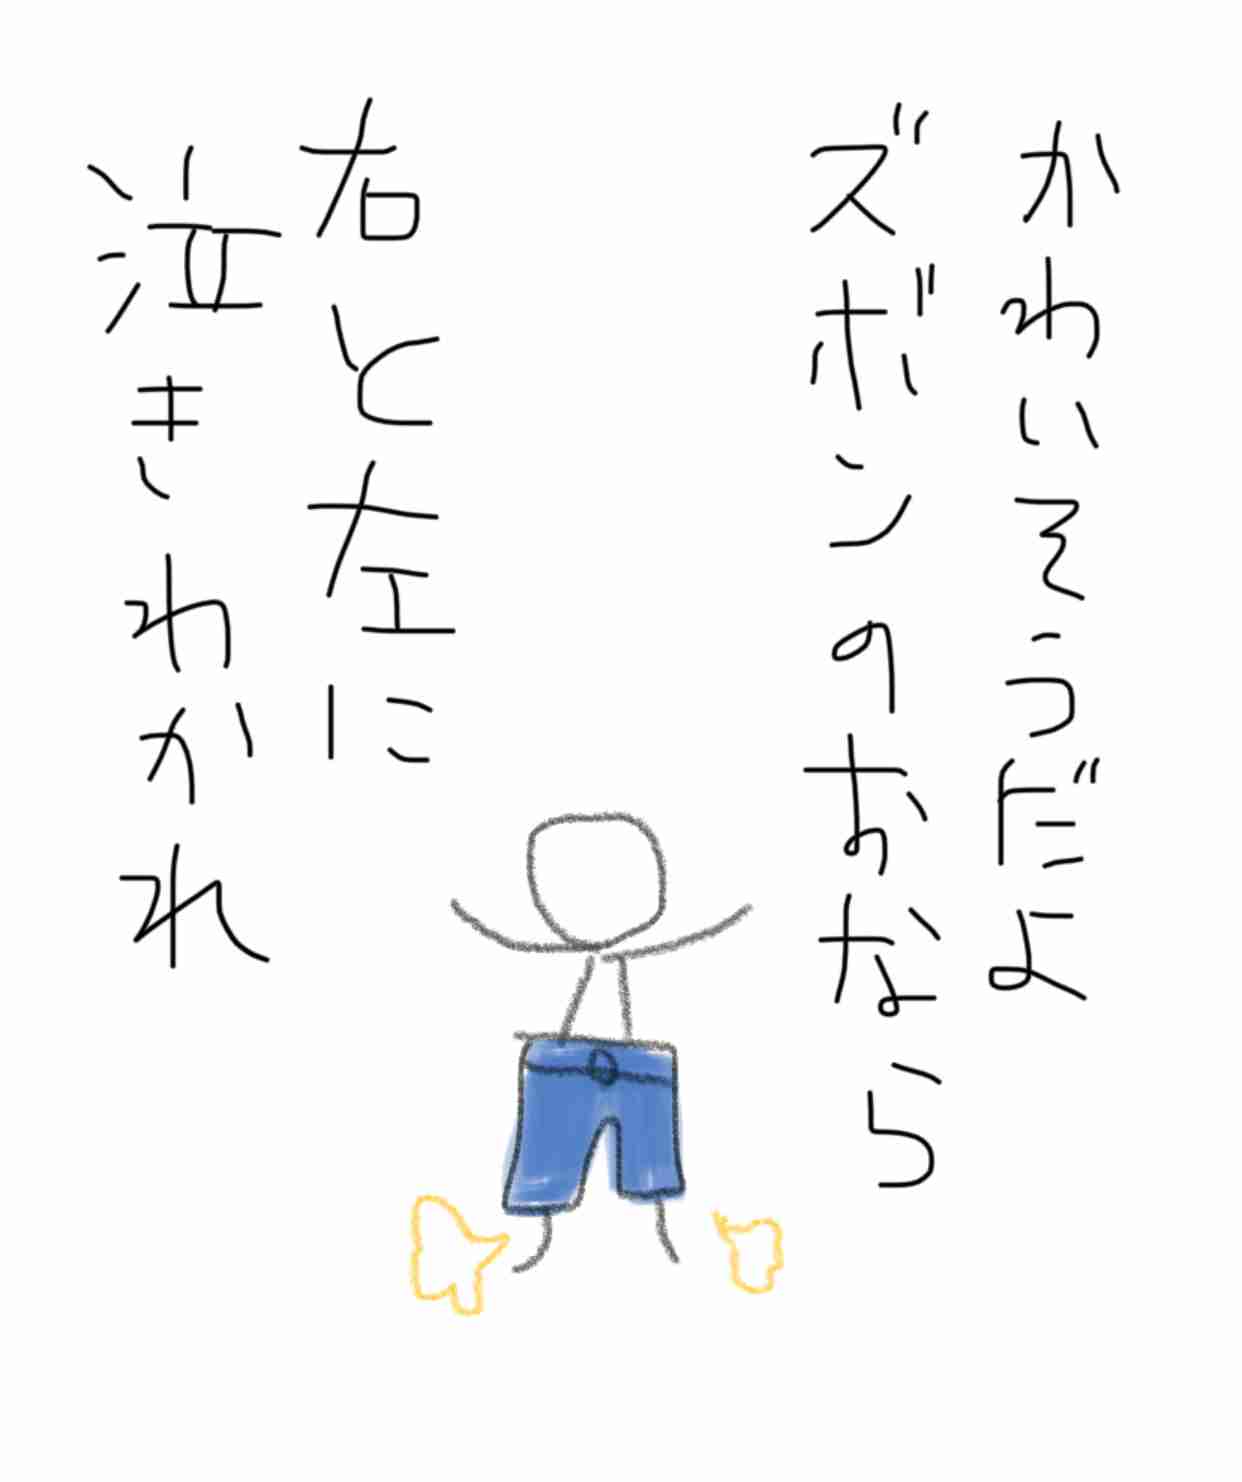 かわいそうだよ
ズボンのおなら
右と左に
泣きわかれ